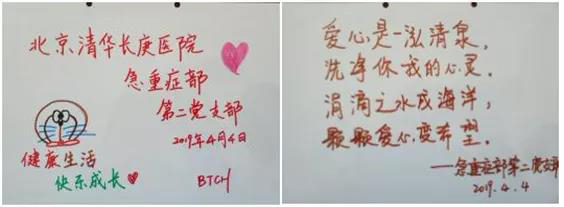 北京清华长庚医院
急重症部
第二党支部
2019年4月4日
健康生活
快乐成长
BTCH
爱心是一泓清泉,
洗净你我的心灵.
涓滴之水成海洋,
颗颗爱心变希望.
——急重症部第二党支部
2019.4.4